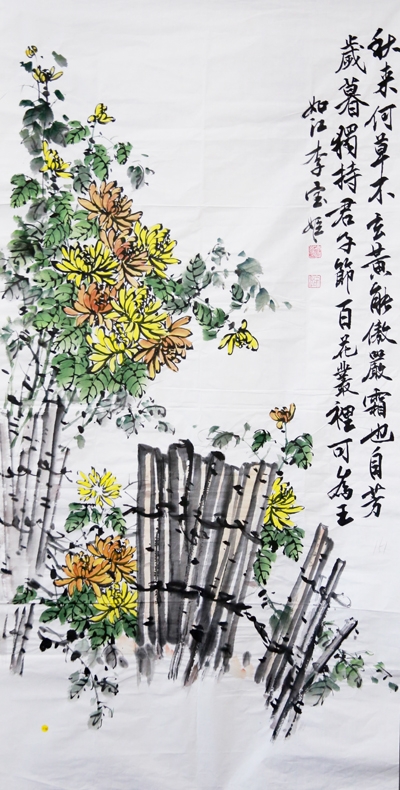 秋来何草不玄黃能傲嚴霜也自芳
歲暮獨持君子節百花叢裡可為王
如江李宝